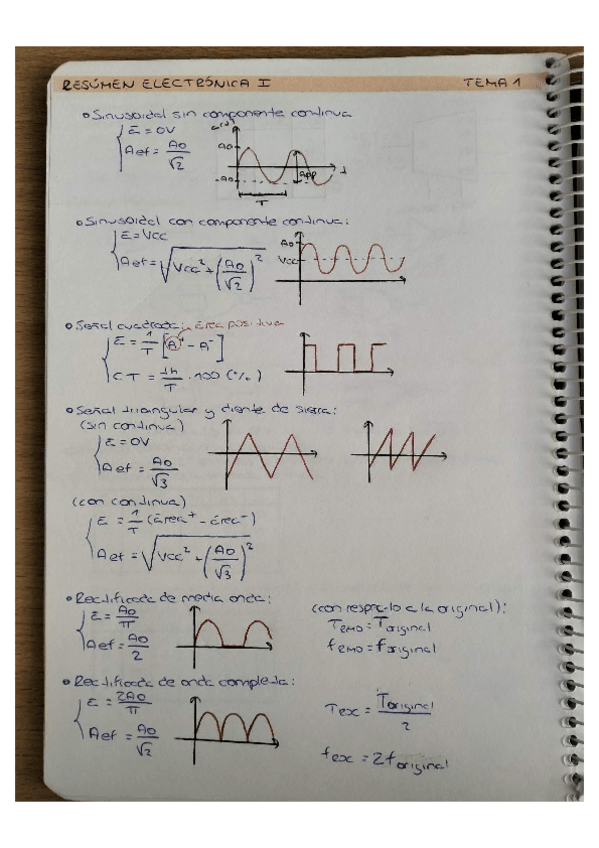 RESÚMEN ELECTRÓNICA I TEMA 1
• Sinusoidal sin componente continua
E = 0V
Aef = A0/√2
A0
-A0
App
T
• Sinusoidal con componente continua:
E = Vcc
Aef = √(Vcc² + (A0/√2)²)
A0
Vcc
• Señal cuadrada: área positiva
E = 1/T [A⁺ - A⁻]
CT = th/T · 100 (%)
• Señal triangular y diente de sierra:
(sin continua)
E = 0V
Aef = A0/√3
(con continua)
E = 1/T (área⁺ - área⁻)
Aef = √(Vcc² + (A0/√3)²)
• Rectificada de media onda: (con respecto a la original):
E = A0/π
TRMO = Toriginal
Aef = A0/2
fRMO = foriginal
• Rectificada de onda completa:
E = 2A0/π
Tex = Toriginal/2
Aef = A0/√2
fex = 2foriginal